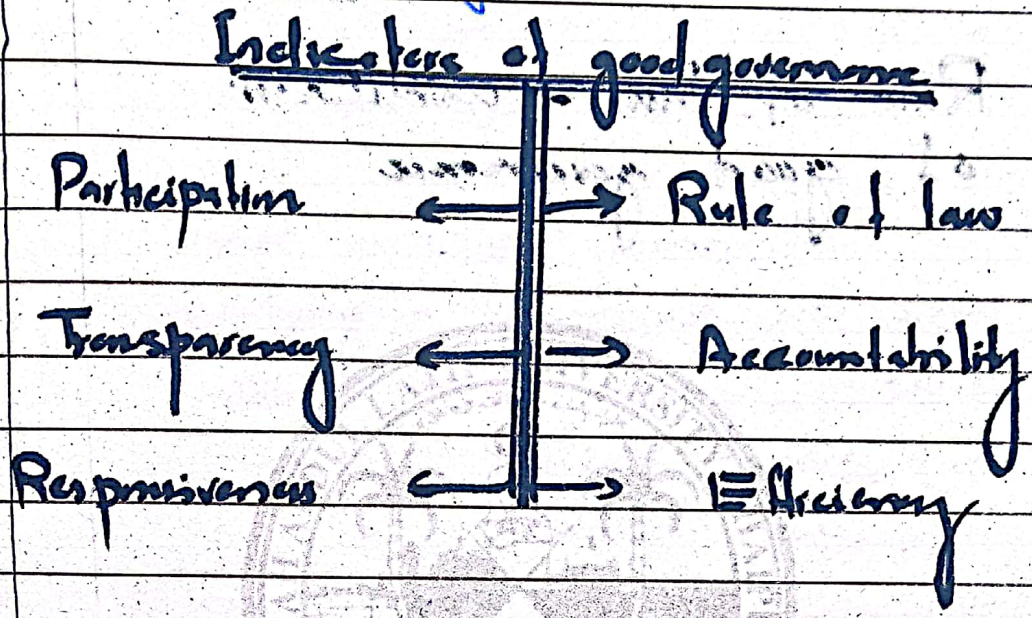 Indicators of good governance
Participation Rule of law
Transparency Accountability
Responsiveness Efficiency